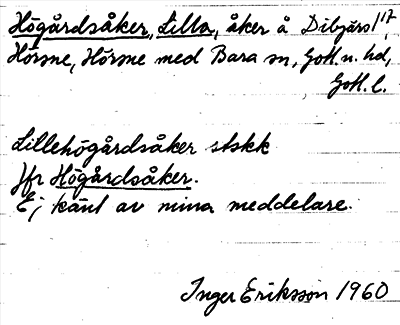 Högårdsåker, Lilla, åker å Dibjärs 1/17,
Hörsne, Hörsne med Bara sn, Gotl. n. hd,
Gotl. l.
Lillehögårdsåker stskk
Jfr Högårdsåker.
Ej känt av mina meddelare.
Inger Eriksson 1960